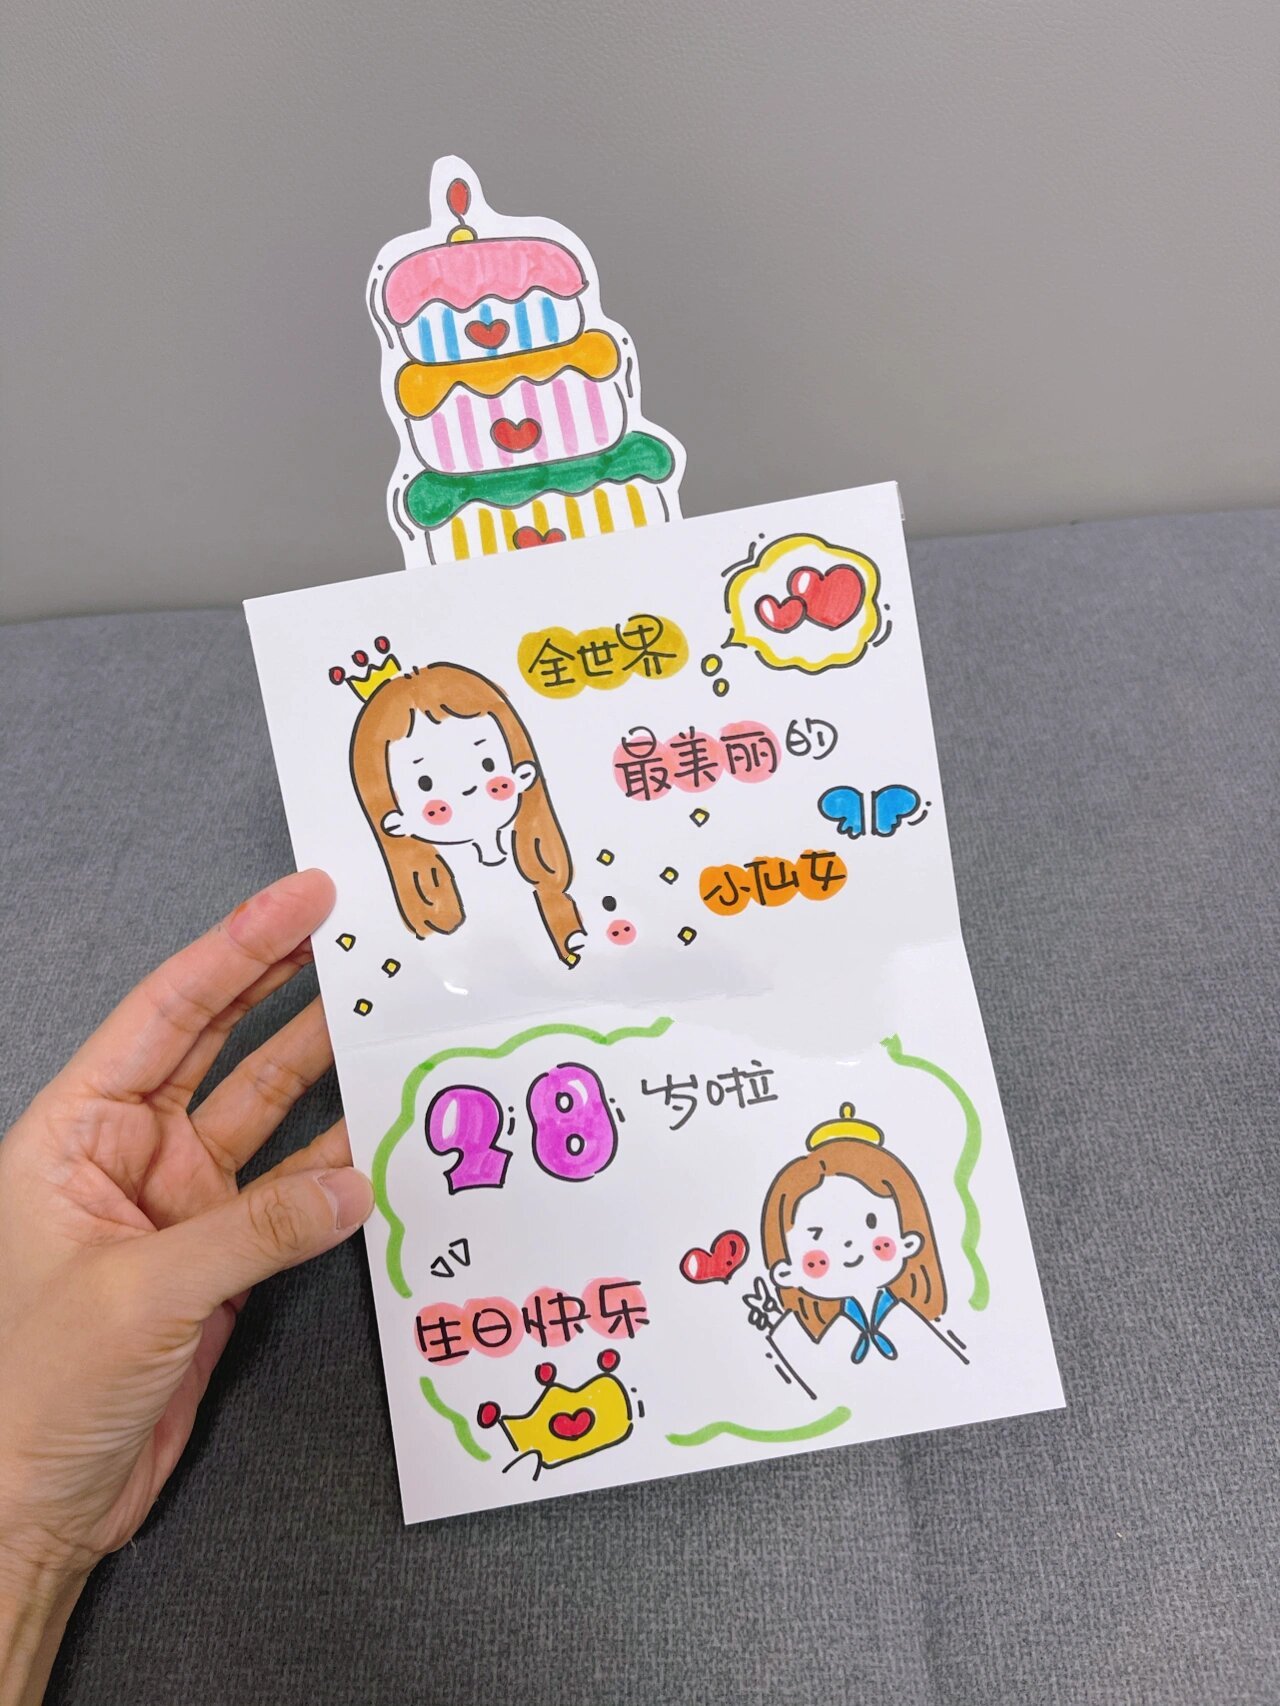 全世界
最美丽的
小仙女
28岁啦
生日快乐